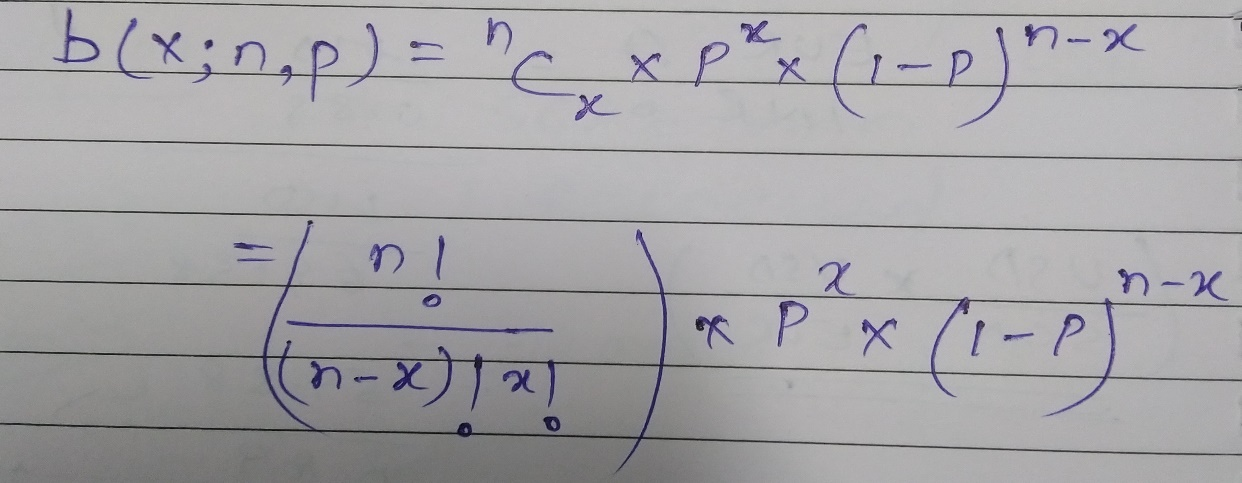 b(x; n, p) = ⁿCₓ × pˣ × (1-p)ⁿ⁻ˣ
= (n! / (n-x)! x!) × pˣ × (1-p)ⁿ⁻ˣ